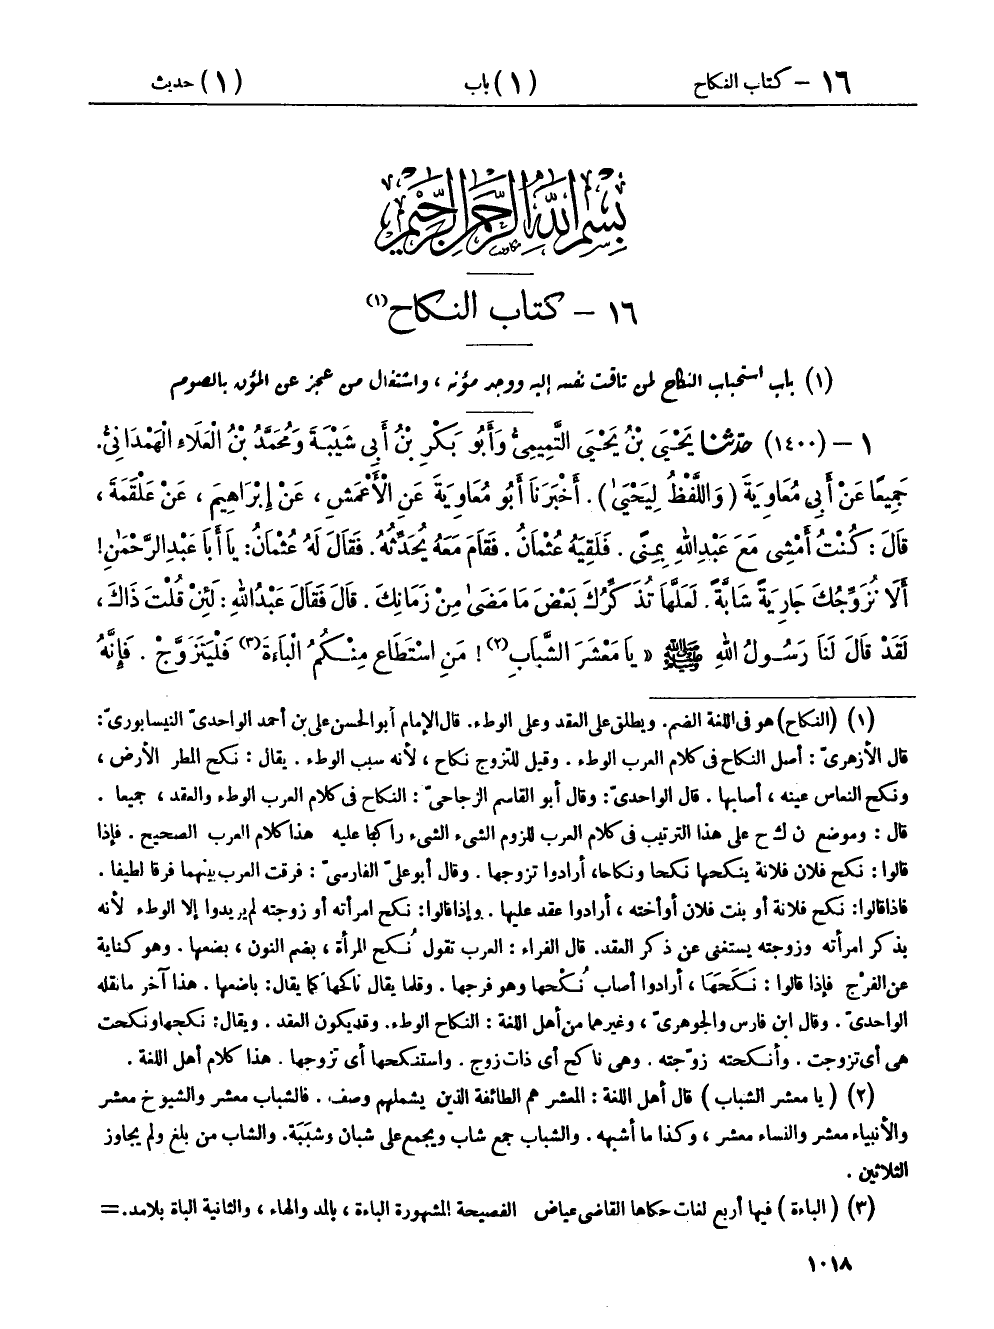 ١٦ - كتاب النكاح (١) باب (١) حديث
بسم الله الرحمن الرحيم
١٦ - كتاب النكاح(١)
(١) باب استحباب النكاح لمن تاقت نفسه إليه ووجد مؤنه ، واشتغال من عجز عن المؤن بالصوم
١ - (١٤٠٠) حدّثنا يَحْيَى بْنُ يَحْيَى التَّمِيمِىُّ وَأَبُو بَكْرِ بْنُ أَبِى شَيْبَةَ وَمُحَمَّدُ بْنُ الْعَلَاءِ الْهَمْدَانِىُّ.
جَمِيعًا عَنْ أَبِى مُعَاوِيَةَ (وَاللَّفْظُ لِيَحْيَىٰ) . أَخْبَرَنَا أَبُو مُعَاوِيَةَ عَنِ الْأَعْمَشِ ، عَنْ إِبْرَاهِيمَ ، عَنْ عَلْقَمَةَ ،
قَالَ : كُنْتُ أَمْشِى مَعَ عَبْدِ اللهِ بِمِنًى . فَلَقِيَهُ عُثْمَانُ . فَقَامَ مَعَهُ يُحَدِّثُهُ. فَقَالَ لَهُ عُثْمَانُ: يَا أَبَا عَبْدِ الرَّحْمٰنِ!
أَلَا نُزَوِّجُكَ جَارِيَةً شَابَّةً . لَعَلَّهَا تُذَكِّرُكَ بَعْضَ مَا مَضَىٰ مِنْ زَمَانِكَ . قَالَ فَقَالَ عَبْدُ اللهِ : لَئِنْ قُلْتَ ذَاكَ ،
لَقَدْ قَالَ لَنَا رَسُولُ اللهِ ﷺ « يَا مَعْشَرَ الشَّبَابِ(٢) ! مَنِ اسْتَطَاعَ مِنْكُمُ الْبَاءَةَ(٣) فَلْيَتَزَوَّجْ . فَإِنَّهُ
(١) (النكاح) هو فى اللغة الضم. ويطلق على العقد وعلى الوطء. قال الإمام أبو الحسن على بن أحمد الواحدىّ النيسابورىّ:
قال الأزهرىّ : أصل النكاح فى كلام العرب الوطء . وقيل للتزوج نكاح ، لأنه سبب الوطء . يقال : نكح المطر الأرض ،
ونكح النعاس عينه ، أصابها . قال الواحدىّ: وقال أبو القاسم الزجاجىّ : النكاح فى كلام العرب الوطء والعقد ، جميعا .
قال : وموضع ن ك ح على هذا الترتيب فى كلام العرب للزوم الشىء الشىء راكبا عليه هذا كلام العرب الصحيح . فإذا
قالوا : نكح فلان فلانة ينكحها نكحا ونكاحا، أرادوا تزوجها . وقال أبو علىّ الفارسىّ : فرقت العرب بينهما فرقا لطيفا .
فاذا قالوا: نكح فلانة أو بنت فلان أو أخته ، أرادوا عقد عليها . وإذا قالوا: نكح امرأته أو زوجته لم يريدوا إلا الوطء لأنه
بذكر امرأته وزوجته يستغنى عن ذكر العقد. قال الفراء : العرب تقول نُكح المرأة ، بضم النون ، بضعها . وهو كناية
عن الفرج فإذا قالوا : نَكَحَهَا ، أرادوا أصاب نُكْحها وهو فرجها . وقلما يقال ناكحها كما يقال: باضعها . هذا آخر ما نقله
الواحدىّ . وقال ابن فارس والجوهرىّ ، وغيرها من أهل اللغة : النكاح الوطء. وقد يكون العقد . ويقال: نكحها ونكحت
هى أى تزوجت . وأنكحته زوّجته . وهى ناكح أى ذات زوج . واستنكحها أى تزوجها . هذا كلام أهل اللغة .
(٢) (يا معشر الشباب) قال أهل اللغة : المعشر هم الطائفة الذين يشملهم وصف . فالشباب معشر والشيوخ معشر
والأنبياء معشر والنساء معشر ، وكذا ما أشبهه . والشباب جمع شاب ويجمع على شبان وشبَبَة. والشاب من بلغ ولم يجاوز
الثلاثين .
(٣) (الباءة) فيها أربع لغات حكاها القاضى عياض الفصيحة المشهورة الباءة ، بالمد والهاء ، والثانية الباة بلا مد. =
١٠١٨